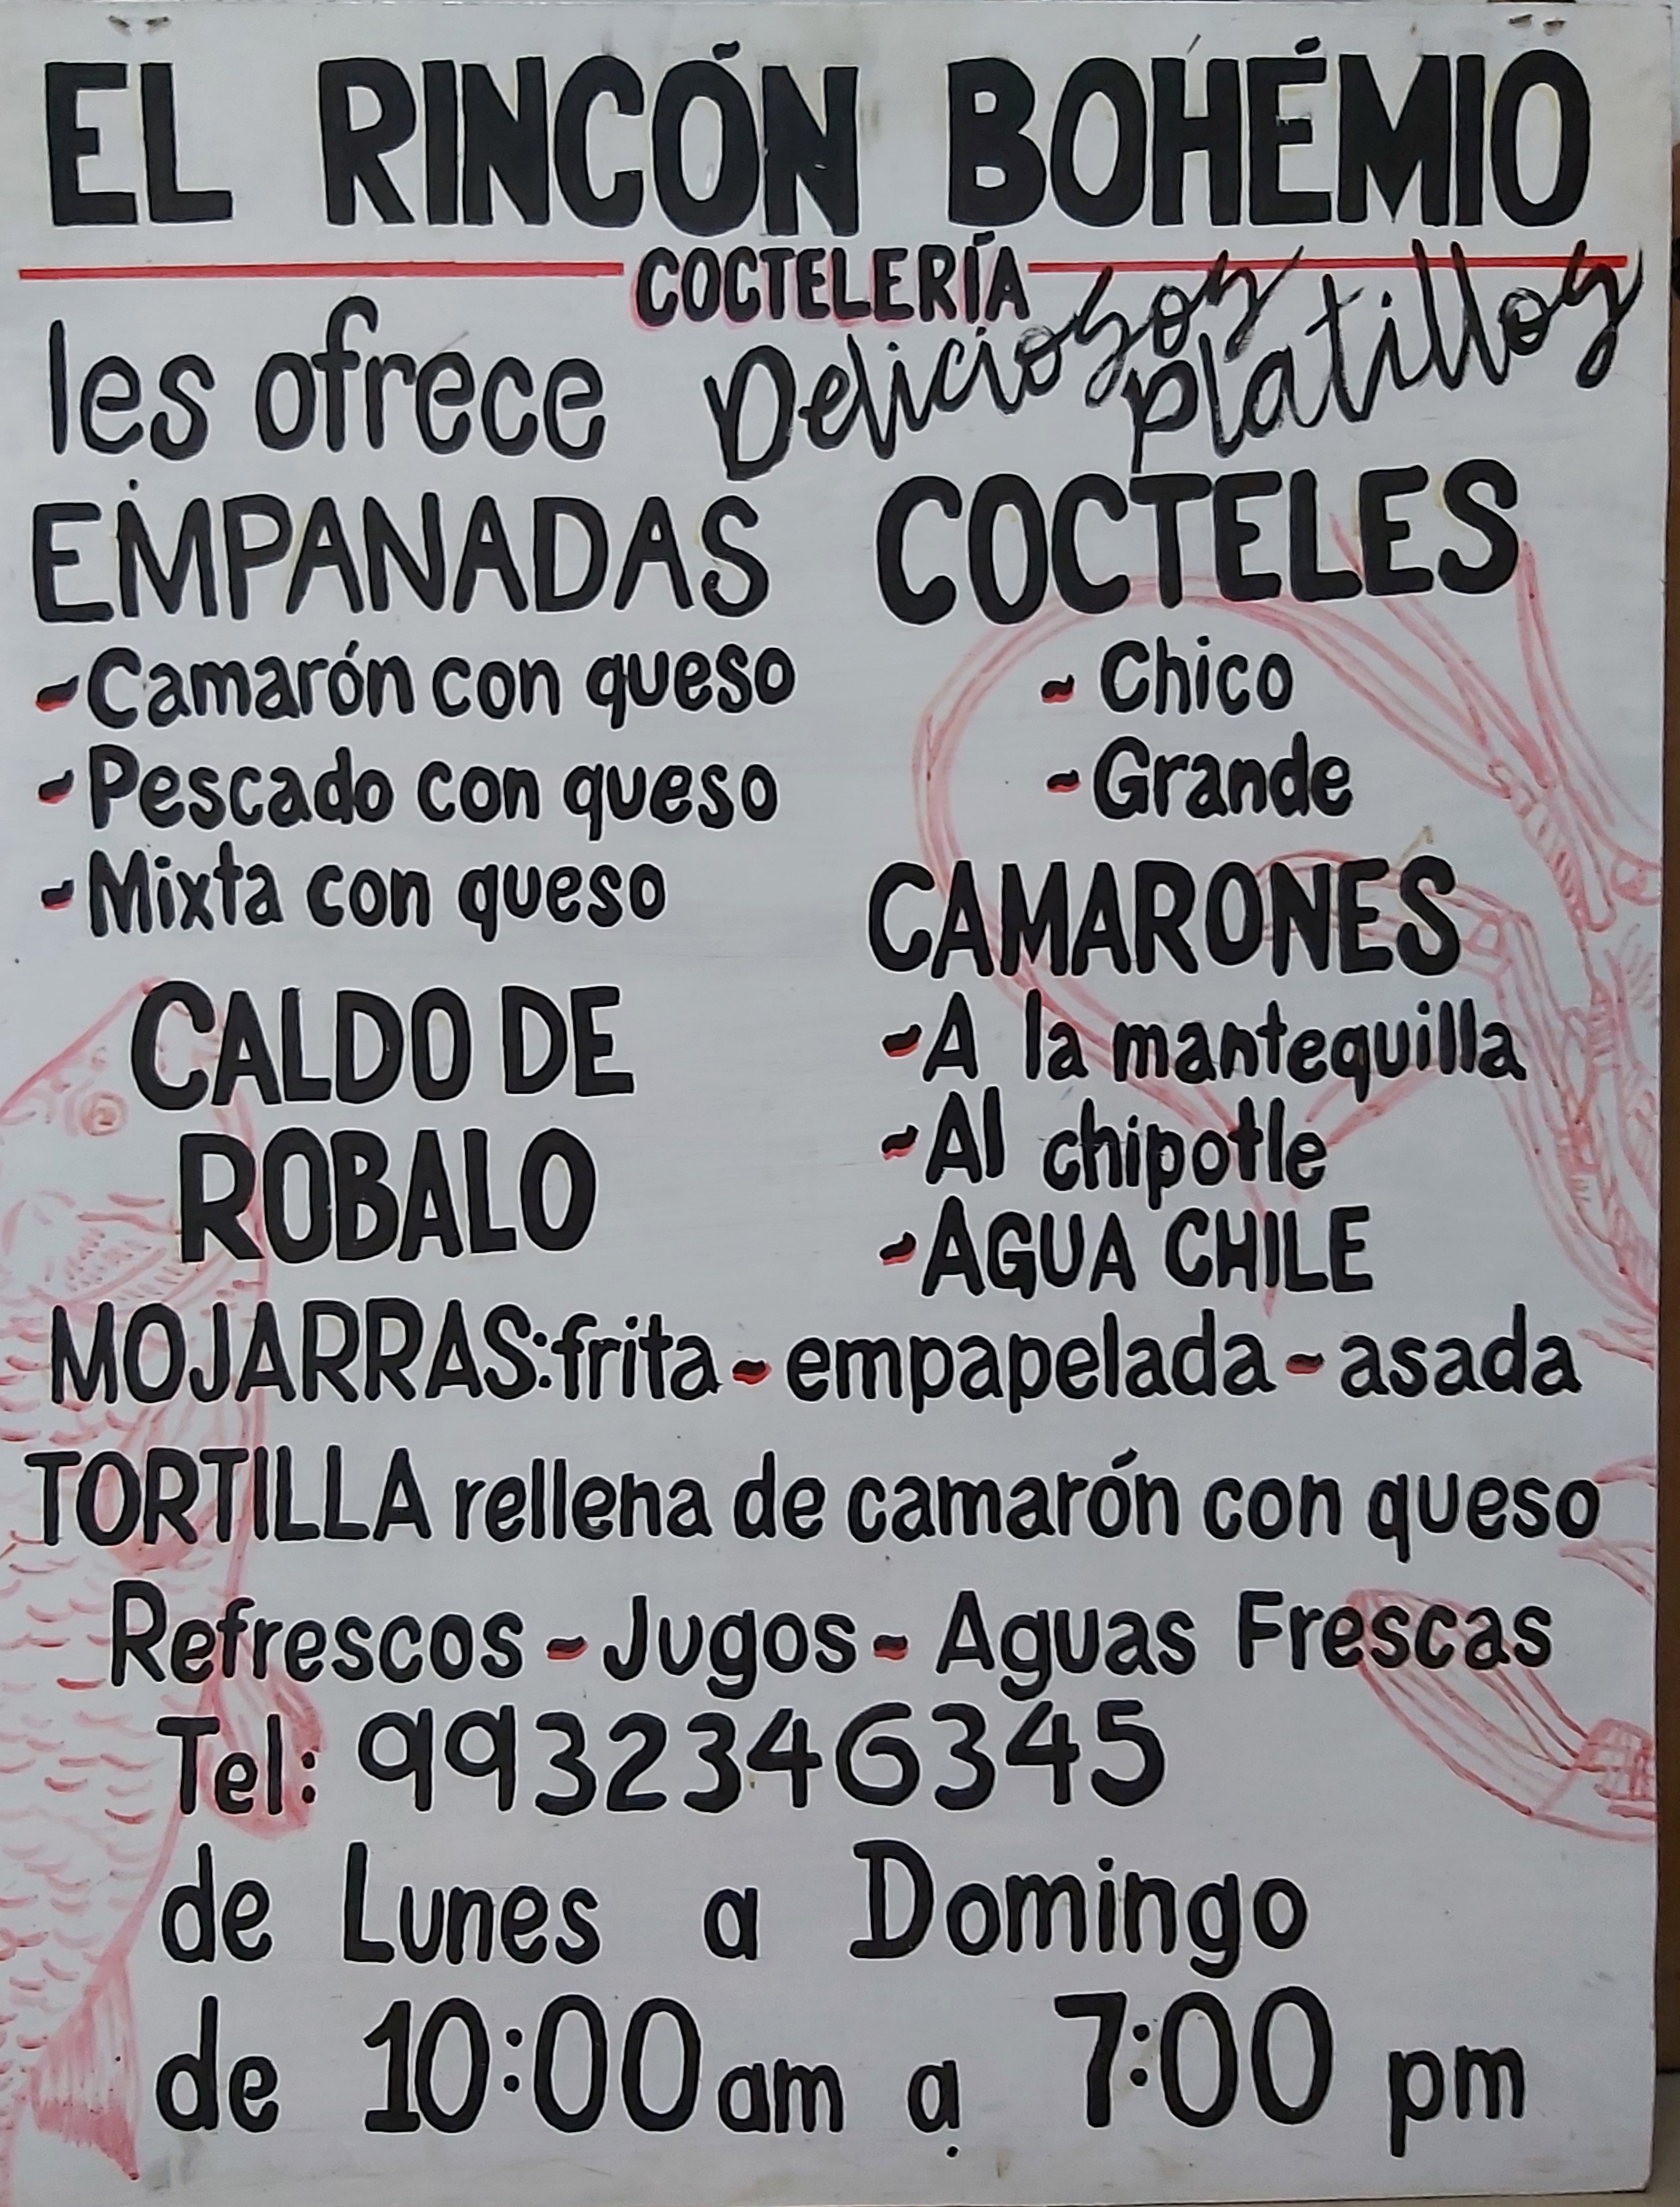 EL RINCÓN BOHÉMIO
COCTELERÍA
les ofrece Deliciosos platillos
EMPANADAS
- Camarón con queso
- Pescado con queso
- Mixta con queso
COCTELES
- Chico
- Grande
CAMARONES
- A la mantequilla
- Al chipotle
- AGUA CHILE
CALDO DE
ROBALO
MOJARRAS: frita - empapelada - asada
TORTILLA rellena de camarón con queso
Refrescos - Jugos - Aguas Frescas
Tel: 9932346345
de Lunes a Domingo
de 10:00 am a 7:00 pm